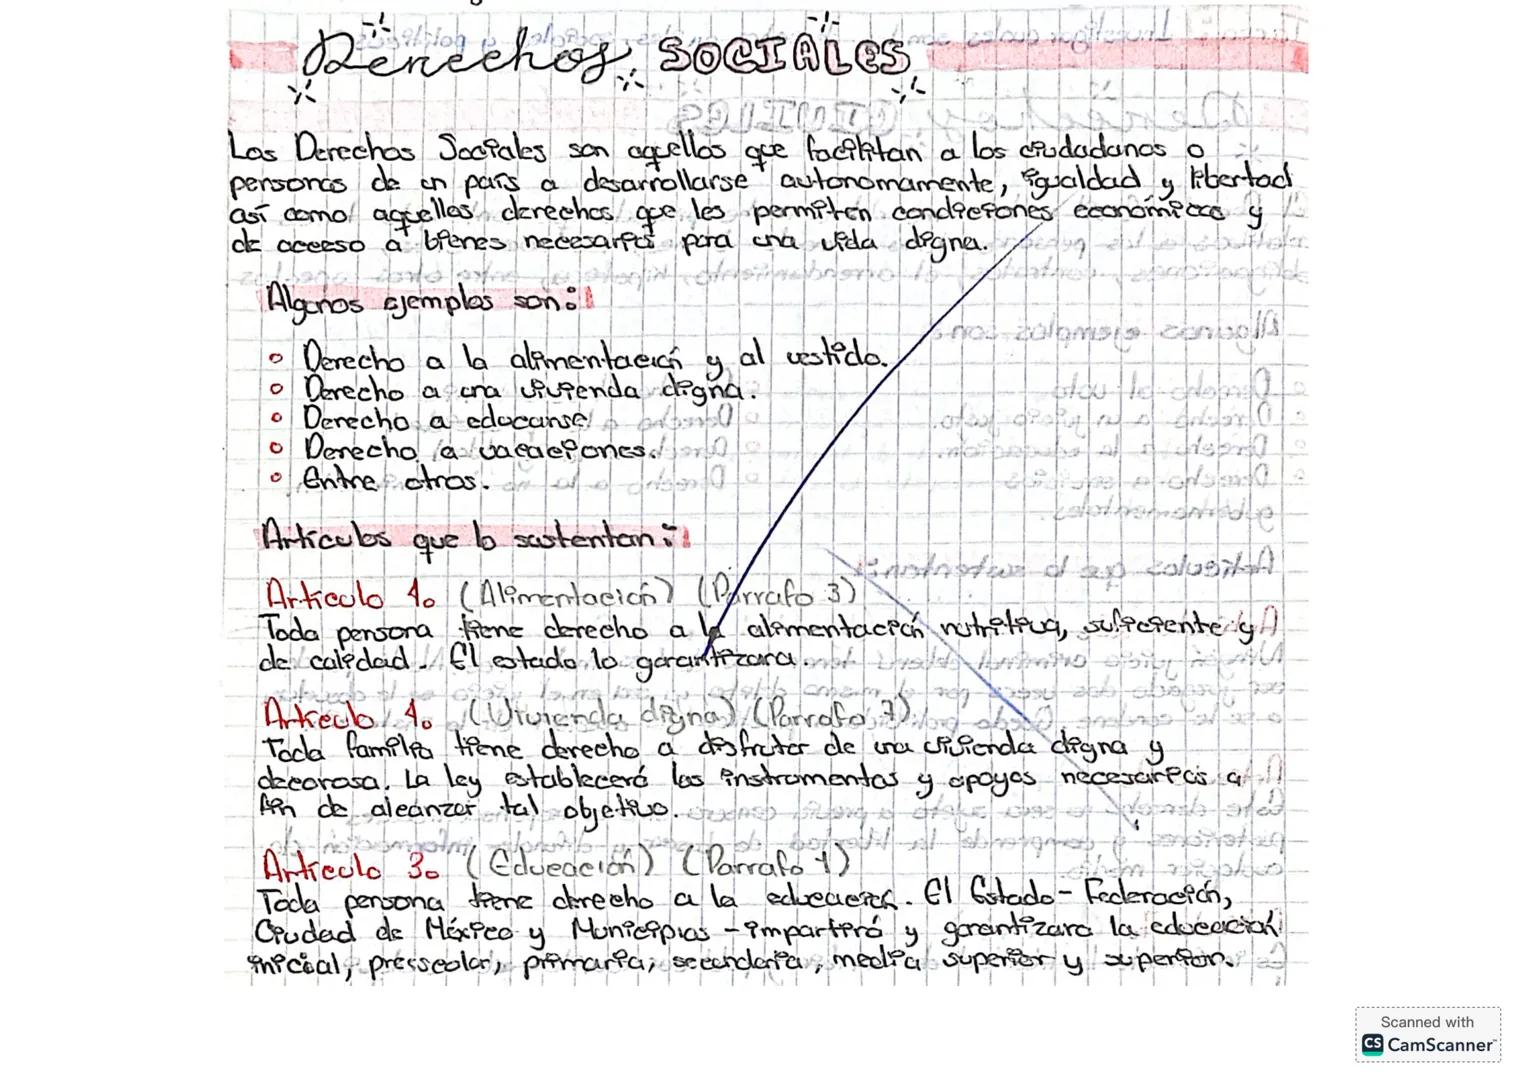 Derechos SOCIALES
Los Derechos Sociales son aquellos que facilitan a los ciudadanos o
personas de un país a desarrollarse autonomamente, igualdad y libertad
así como aquellos derechos que les permiten condiciones económicas y
de acceso a bienes necesarios para una vida digna.
Algunos ejemplos son:
Derecho a la alimentación y al vestido.
Derecho a una vivienda digna.
Derecho a educarse
Derecho a vacaciones.
Entre otros.
Artículos que lo sustentan:
Artículo 4o (Alimentación) (Párrafo 3)
Toda persona tiene derecho a la alimentación nutritiva, suficiente y
de calidad. El estado lo garantizara.
Artículo 4o (Vivienda digna) (Parrafo 7)
Toda familia tiene derecho a disfrutar de una vivienda digna y
decorosa. La ley establecerá los instrumentos y apoyos necesarios a
fin de alcanzar tal objetivo.
Artículo 3o (Educación) (Parrafo 1)
Toda persona tiene derecho a la educación. El Estado - Federación,
Ciudad de México y Municipios - impartirá y garantizara la educación
inicial, preescolar, primaria, secundaria, media superior y superior.
Scanned with
CS CamScanner